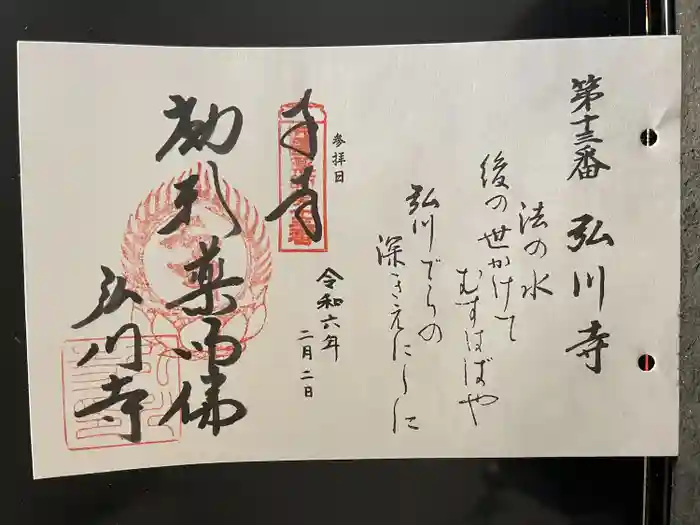 第十三番 弘川寺
法の水
後の世かけて
むすはばや
弘川でらの
深きえにしに
参拝日
奉拝
令和六年
二月二日
勅願 薬師佛
弘川寺